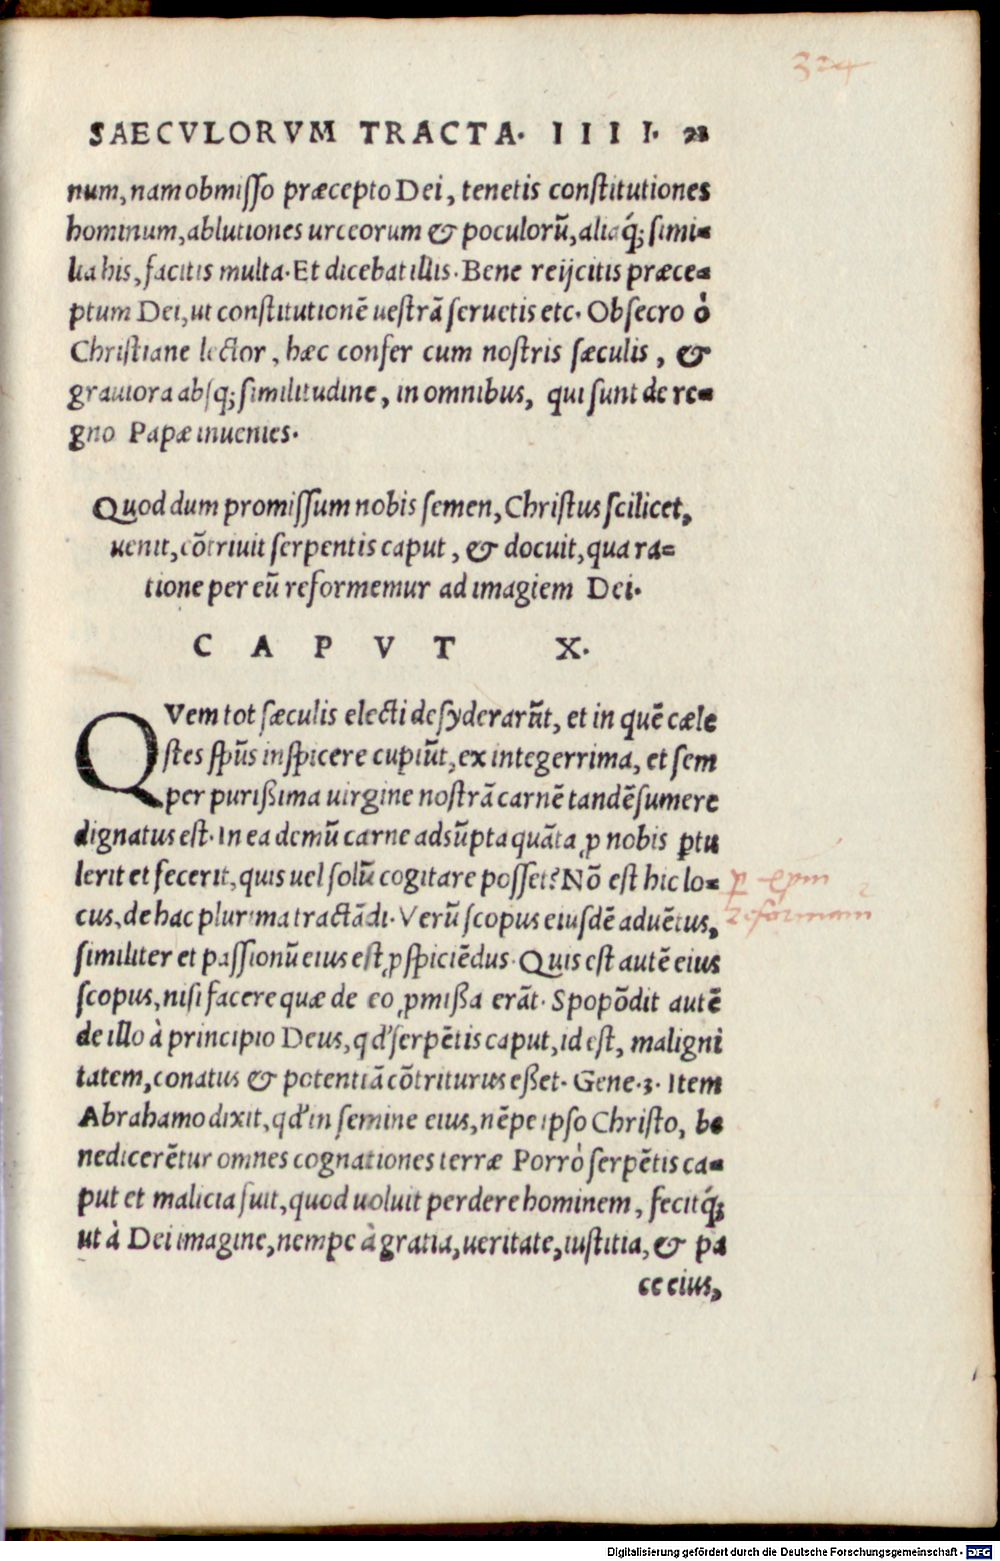 324
SAECVLORVM TRACTA. IIII. 28
num, nam obmisso præcepto Dei, tenetis constitutiones
hominum, ablutiones urceorum & poculorū, aliaq́; simi=
lia his, facitis multa. Et dicebat illis. Bene reijcitis præce=
ptum Dei, ut constitutionē uestrā seruetis etc. Obsecro ò
Christiane lector, hæc confer cum nostris sæculis, &
grauiora absq; similitudine, in omnibus, qui sunt de re=
gno Papæ inuenies.
Quod dum promissum nobis semen, Christus scilicet,
uenit, cōtriuit serpentis caput, & docuit, qua ra=
tione per eū reformemur ad imagiem Dei.
CAPVT X.
QVem tot sæculis electi desyderarūt, et in quē cæle
stes spūs inspicere cupiūt, ex integerrima, et sem
per purißima uirgine nostrā carnē tandē sumere
dignatus est. In ea demū carne adsūpta quāta ꝓ nobis ꝑtu
lerit et fecerit, quis uel solū cogitare posset? Nō est hic lo=
cus, de hac plurima tractādi. Verū scopus eiusdē aduētus,
similiter et passionū eius est ꝓspiciēdus. Quis est autē eius
scopus, nisi facere quæ de eo ꝓmißa erāt. Spopōdit autē
de illo à principio Deus, qđ serpētis caput, id est, maligni
tatem, conatus & potentiā cōtriturus eßet. Gene.3. Item
Abrahamo dixit, qđ in semine eius, nēpe ipso Christo, be
nedicerētur omnes cognationes terræ Porrò serpētis ca=
put et malicia fuit, quod uoluit perdere hominem, fecitq́;
ut à Dei imagine, nempe à gratia, ueritate, iustitia, & pa
ce eius,
ꝑ xpm
reformam
Digitalisierung gefördert durch die Deutsche Forschungsgemeinschaft - DFG